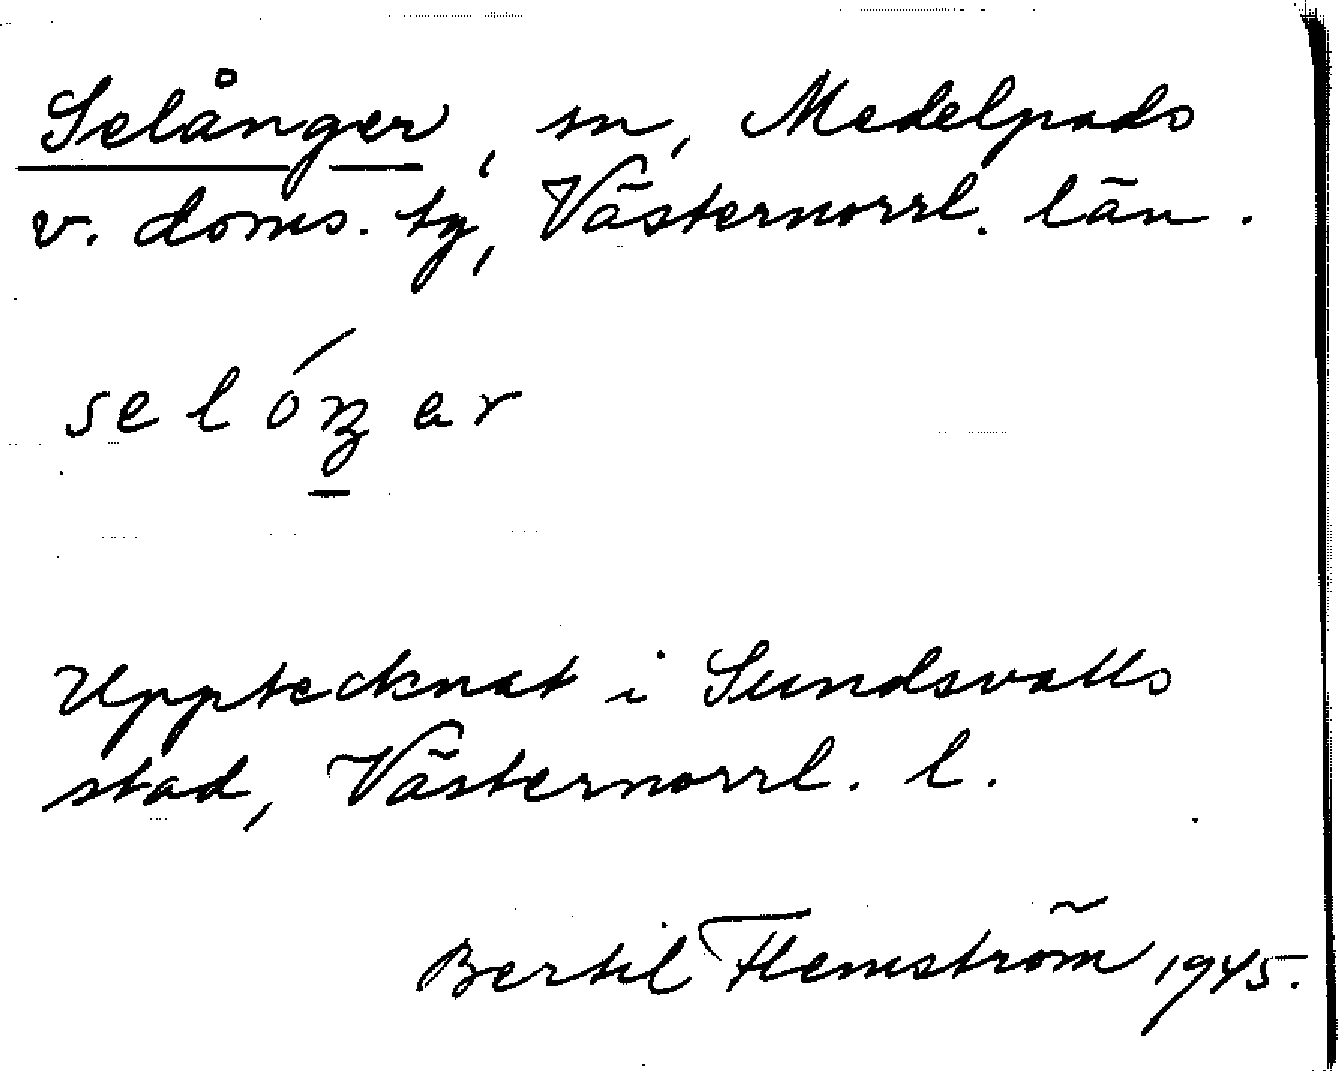 Selånger, sn, Medelpads
v. doms. tg, Västernorrl. län.
selóŋar
Upptecknat i Sundsvalls
stad, Västernorrl. l.
Bertil Flemström 1945.